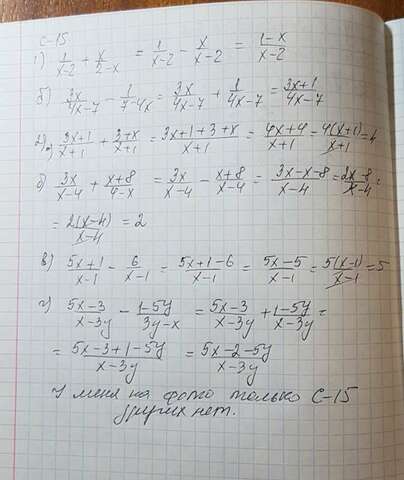 С-15
1) 1/(x-2) + x/(2-x) = 1/(x-2) - x/(x-2) = (1-x)/(x-2)
б) 3x/(4x-7) - 1/(7-4x) = 3x/(4x-7) + 1/(4x-7) = (3x+1)/(4x-7)
2) a) (3x+1)/(x+1) + (3+x)/(x+1) = (3x+1+3+x)/(x+1) = (4x+4)/(x+1) = 4(x+1)/(x+1) = 4
б) 3x/(x-4) + (x+8)/(4-x) = 3x/(x-4) - (x+8)/(x-4) = (3x-x-8)/(x-4) = (2x-8)/(x-4) =
= 2(x-4)/(x-4) = 2
в) (5x+1)/(x-1) - 6/(x-1) = (5x+1-6)/(x-1) = (5x-5)/(x-1) = 5(x-1)/(x-1) = 5
г) (5x-3)/(x-3y) - (1-5y)/(3y-x) = (5x-3)/(x-3y) + (1-5y)/(x-3y) =
= (5x-3+1-5y)/(x-3y) = (5x-2-5y)/(x-3y)
У меня на фото только С-15
других нет.